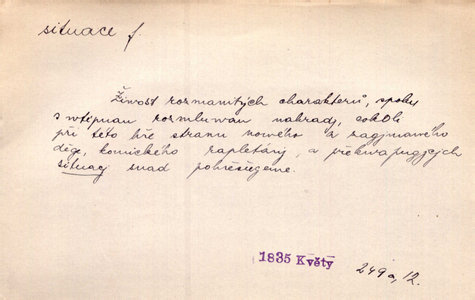 situace f.
Živost rozmanitých charakterů, spolu
s wtipnau rozmluwau nahradj, cokoli
při této hře stranu nowého a zagjmawého
děge, komického zapletáný, a překwapugjcých
situacj snad pohřešugeme.
1835 Květy
249 a, 12.